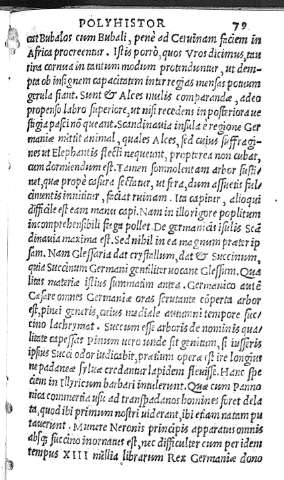 POLYHISTOR 79
cat Bubalos cum Bubali, penè ad Ceruinam faciem in
Africa procreentur. Istis porrò, quos Vros dicimus, tau
rina cornua in tantum modum protenduntur, ut dem-
pta ob insignem capacitatem inter regias mensas potuum
gerula fiant. Sunt & Alces mulis comparandæ, adeo
propenso labro superiore, ut nisi recedens in posteriora ue
stigia pasci nō queant. Scandinauia insula è regione Ger
maniæ mittit animal, quales Alces, sed cuius suffragi-
nes ut Elephantis flecti nequeunt, propterea non cubat,
cum dormiendum est. Tamen somnolentam arbor susti
net, quæ propè casura sectatur, ut fera, dum assuetis fulci
mentis innititur, faciat ruinam. Ita capitur, alioqui
difficile est eam manu capi. Nam in illo rigore poplitum
incomprehensibili fuga pollet. De germanicis insulis Scā
dinauia maxima est. Sed nihil in ea magnum præter ip
sam. Nam Glessaria dat crystallum, dat & Succinum,
quia Succinum Germani gentiliter uocant Glessum. Qua
litas materiæ istius summatim antea. Germanico autē
Cæsare omnes Germaniæ oras scrutante cōperta arbor
est, pinei generis, cuius mediale autumni tempore suc/
cino lachrymat. Succum esse arboris de nominis qua/
litate capessit Pinum uero unde sit genitum, si usseris
ipsius Succi odor iudicabit. prætium operæ est ire longius
ne padaneæ syluæ credantur lapidem fleuisse. Hanc spe
ciem in Illyricum barbari intulerunt. Quæ cum Panno
nica commertia usu ad transpadanos homines foret dela
ta, quod ibi primum nostri uiderant, ibi etiam natam pu
tauerunt. Munere Neronis principis apparatus omnis
absq; succino inornatus est, nec difficulter cum per idem
tempus XIII millia librarum Rex Germaniæ dono